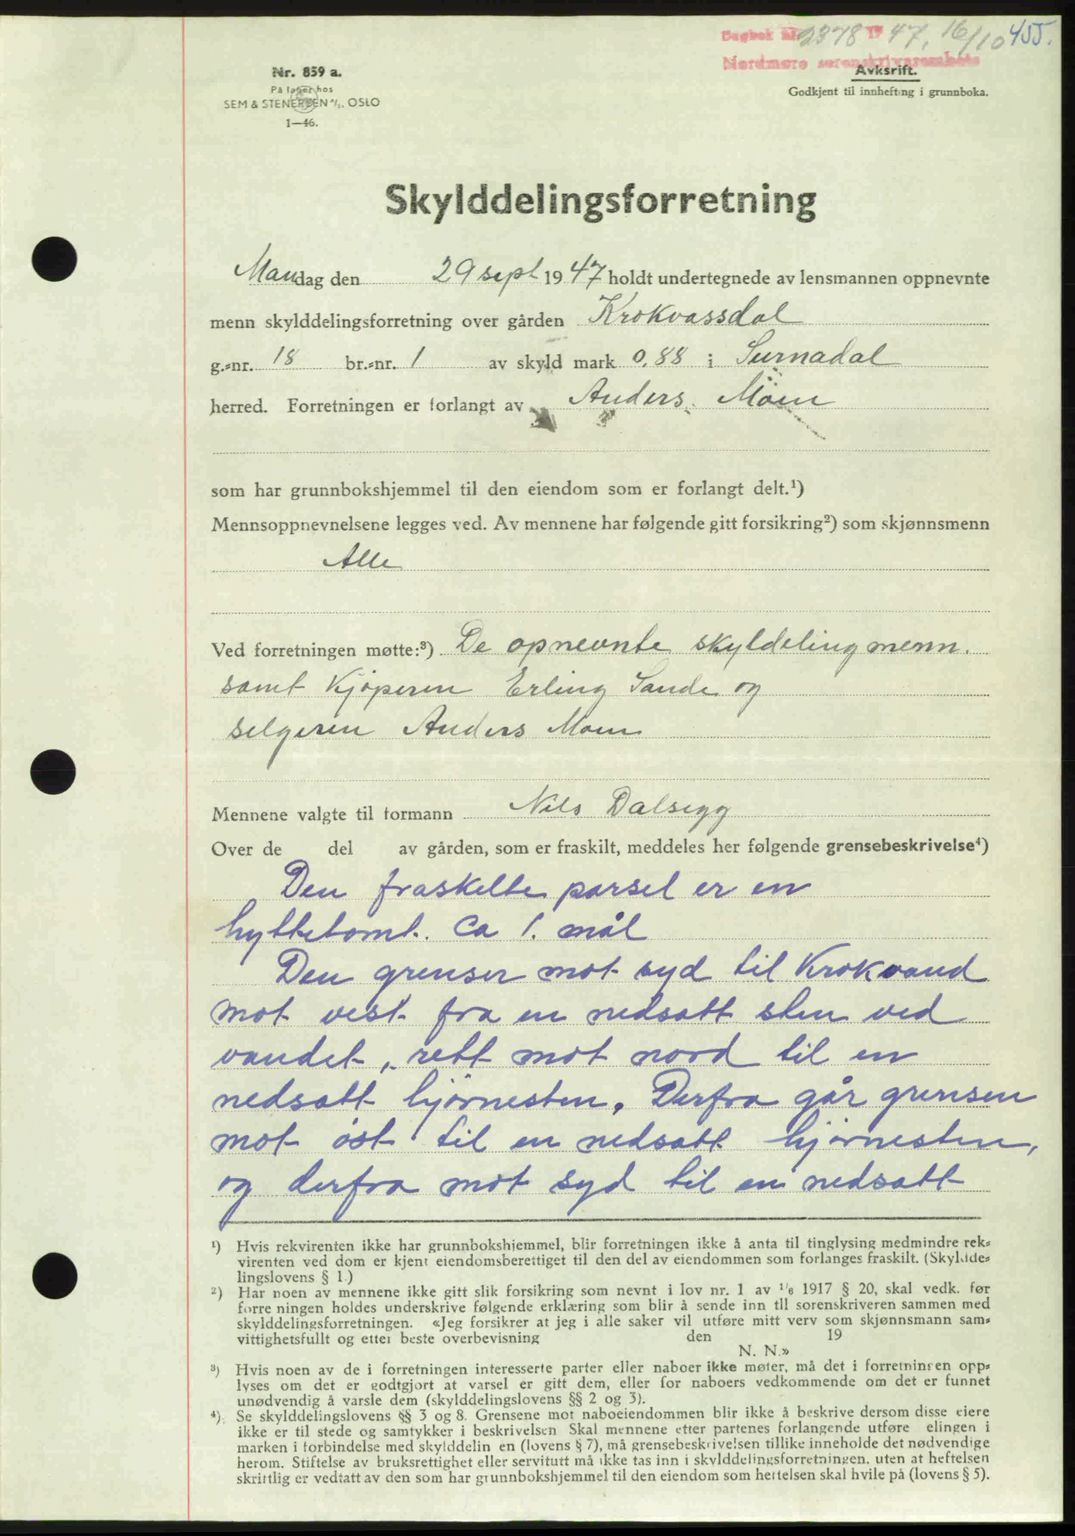 Dagbok nr. 2378 19 47, 16/10 455.
Nordmøre sorenskriverembete
Nr. 859 a.
På lager hos
SEM & STENERSEN A/S. OSLO
1—46.
Avskrift.
Godkjent til innhefting i grunnboka.
Skylddelingsforretning
Mandag den 29 sept 1947 holdt undertegnede av lensmannen oppnevnte
menn skylddelingsforretning over gården Krokvassdal
g.-nr. 18 br.-nr. 1 av skyld mark 0,88 i Surnadal
herred. Forretningen er forlangt av Anders Moen
som har grunnbokshjemmel til den eiendom som er forlangt delt.¹)
Mennsoppnevnelsene legges ved. Av mennene har følgende gitt forsikring²) som skjønnsmenn
Alle
Ved forretningen møtte:³) De opnevnte skyldeling menn.
samt Kjøperen Erling Sande og
selgeren Anders Moen
Mennene valgte til formann Nils Dalsegg
Over de del av gården, som er fraskilt, meddeles her følgende grensebeskrivelse⁴)
Den fraskelte parsel er en
hyttetomt. Ca 1. mål
Den grenser mot syd til Krokvand
mot vest fra en nedsatt sten ved
vandet, rett mot nord til en
nedsatt hjørnesten. Derfra går grensen
mot øst til en nedsatt hjørnesten,
og derfra mot syd til en nedsatt
¹) Hvis rekvirenten ikke har grunnbokshjemmel, blir forretningen ikke å anta til tinglysing medmindre rek-
virenten ved dom er kjent eiendomsberettiget til den del av eiendommen som forlanges fraskilt. (Skyldde-
lingslovens § 1.)
²) Har noen av mennene ikke gitt slik forsikring som nevnt i lov nr. 1 av 1/6 1917 § 20, skal vedk. før
forretningen holdes underskrive følgende erklæring som blir å sende inn til sorenskriveren sammen med
skylddelingsforretningen. «Jeg forsikrer at jeg i alle saker vil utføre mitt verv som skjønnsmann sam-
vittighetsfullt og etter beste overbevisning den 19
N. N.»
³) Hvis noen av de i forretningen interesserte parter eller naboer ikke møter, må det i forretningen opp-
lyses om det er godtgjort at varsel er gitt dem, eller for naboers vedkommende om det er funnet
unødvendig å varsle dem (skylddelingslovens §§ 2 og 3).
⁴) Se skylddelingslovens §§ 3 og 8. Grensene mot naboeiendommen blir ikke å beskrive dersom disse eiere
ikke er til stede og samtykker i beskrivelsen Skal mennene etter partenes forlangende utføre elingen i
marken i forbindelse med skylddelin en (lovens § 7), må grensebeskrivelsen tillike inneholde det nødvendige
herom. Stiftelse av bruksrettighet eller servitutt må ikke tas inn i skylddelingsforretningen. uten at heftelsen
skriftlig er vedtatt av den som har grunnbokshjemmel til den eiendom som heftelsen skal hvile på (lovens § 5).